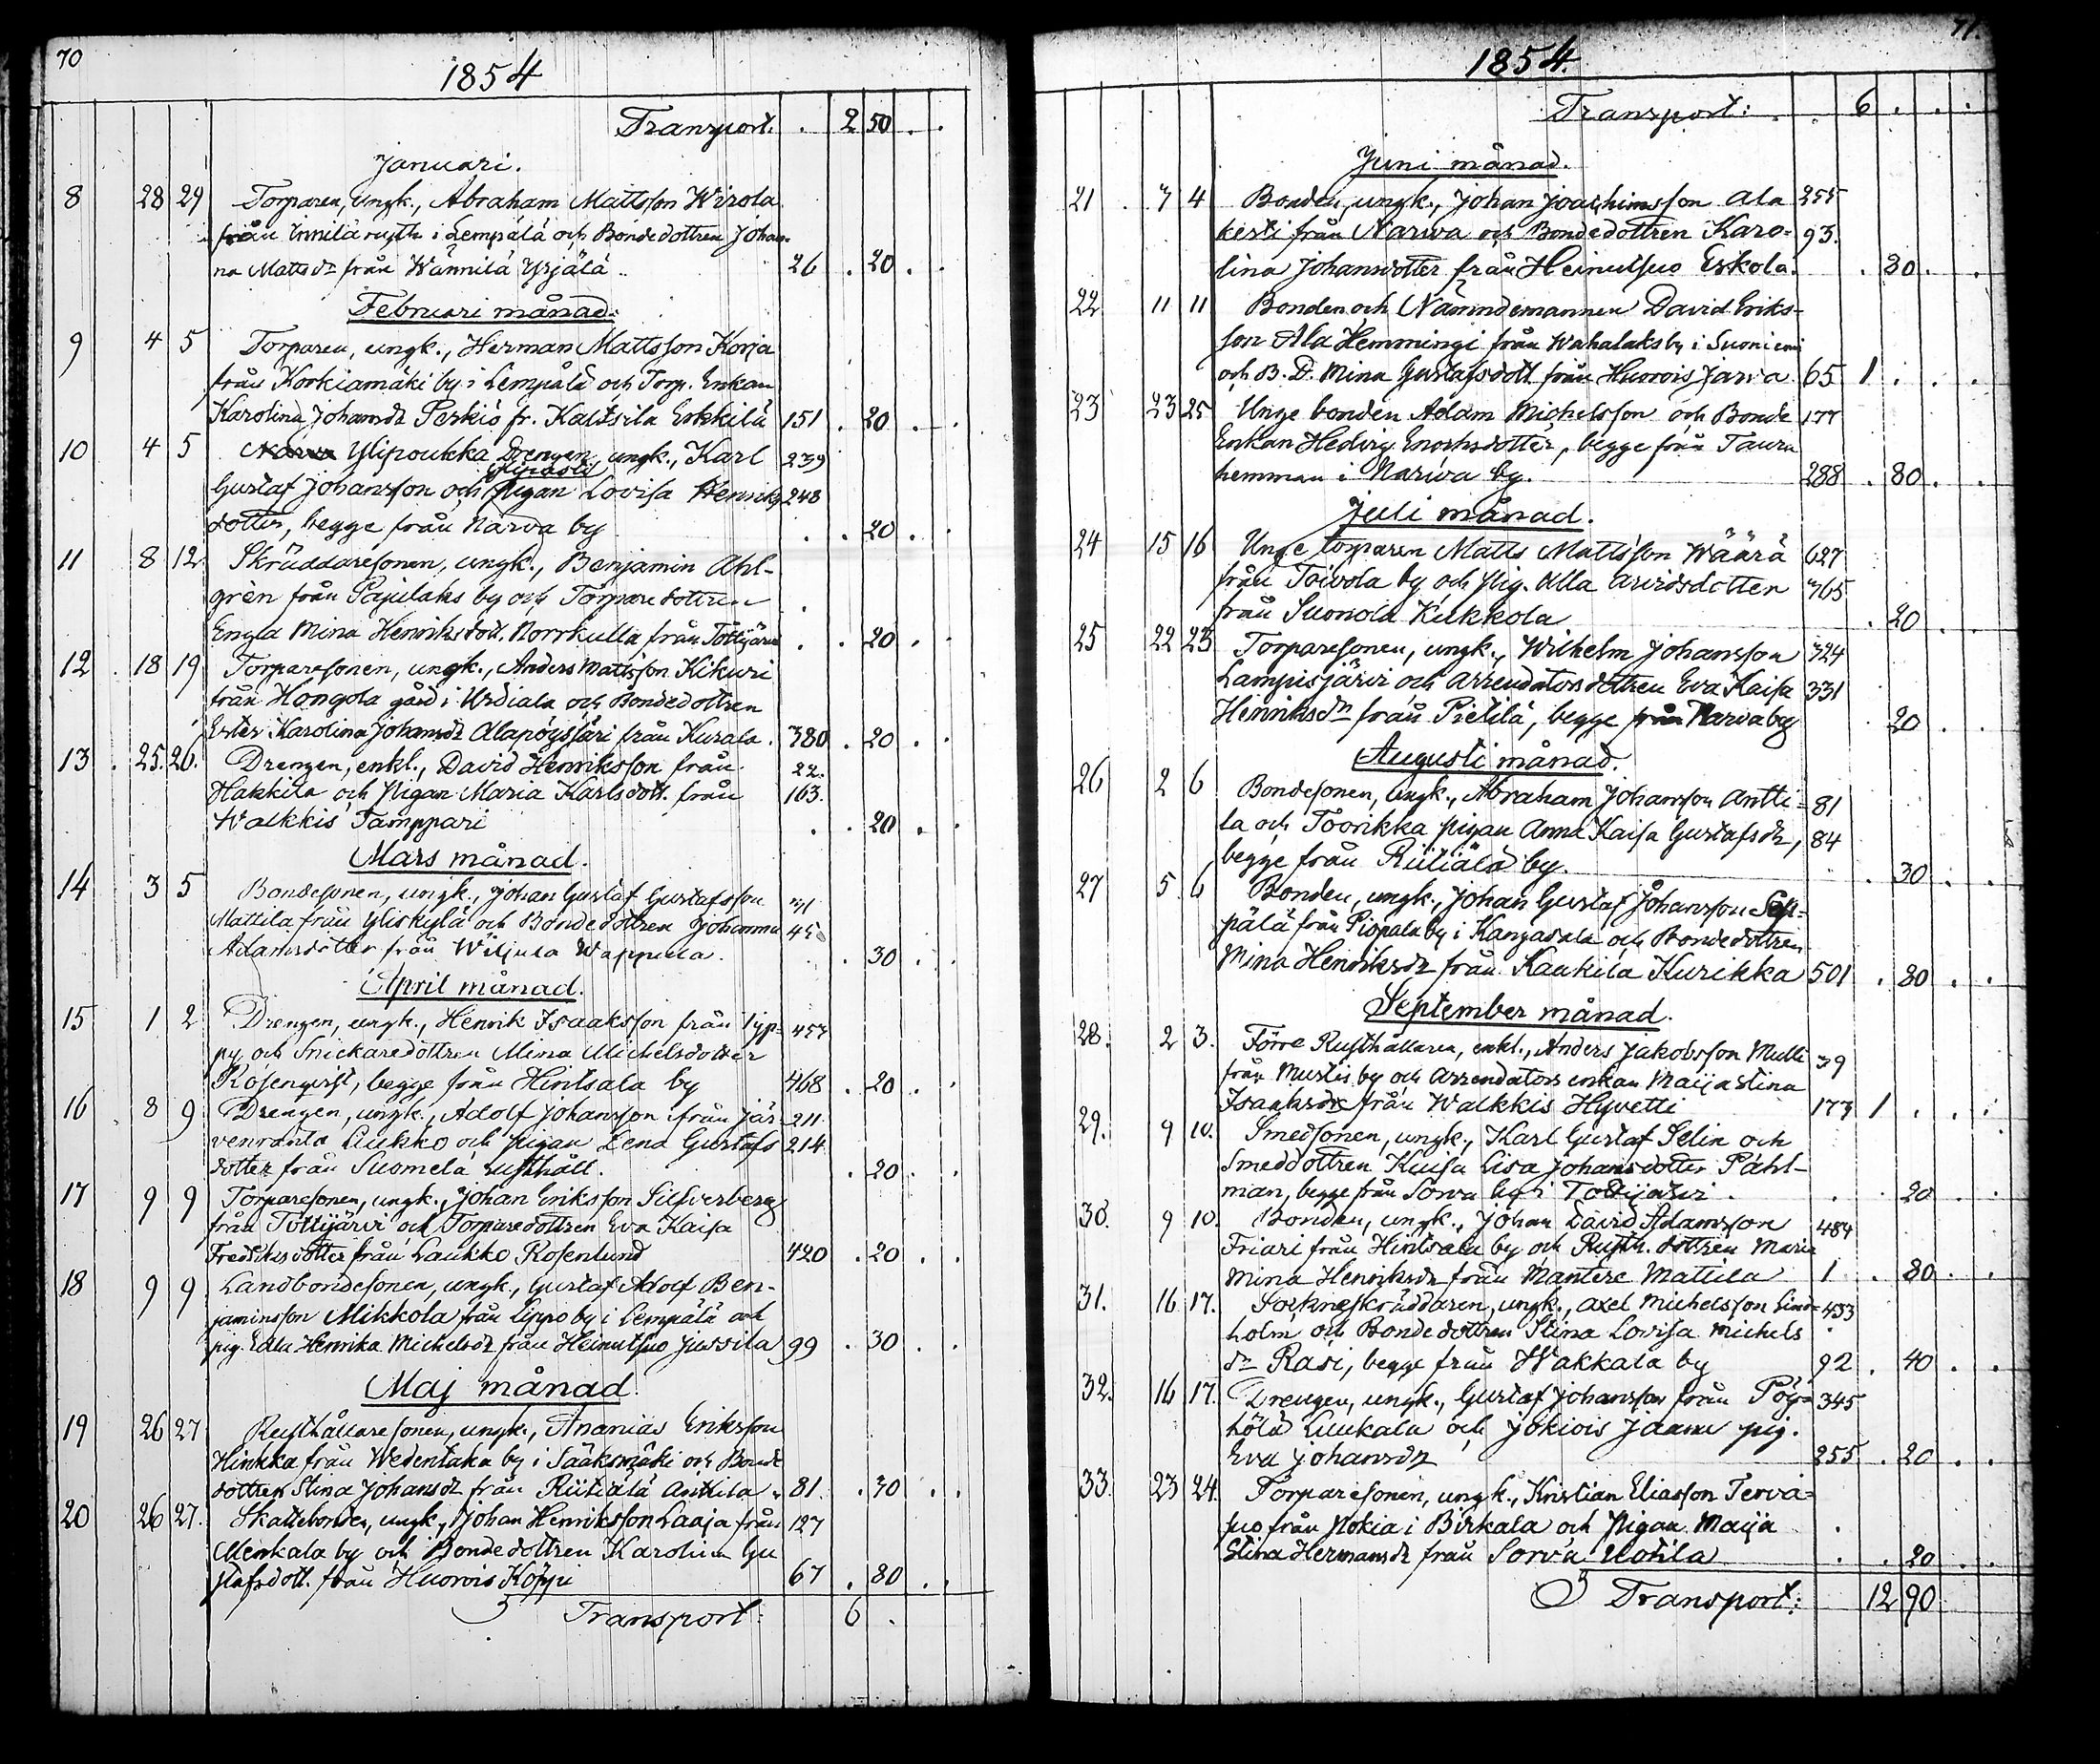 70
1854
Transport. . 2 50 . .
Januari.
8 28 29 Torparen, ungk., Abraham Mattsson Wirola
från Innilä rusth. i Lempälä och Bondedottren Johan-
na Mattsdr från Wännilä Yrjälä .. 26 . 20 . .
Februari månad.
9 4 5 Torparen, ungk., Herman Mattsson Korja
från Korkiamäki by i Lempälä och Torp. Enkan
Karolina Johansdr Perkiö fr. Kaltsila Erkkilä 151 . 20 . .
10 4 5 Ylipoukka Drengen, ungk., Karl 239
Gustaf Johansson och Pigan Lovisa Henriks 248
dotter, begge från Narva by . . 20 . .
11 8 12 Skräddaresonen, ungk., Benjamin Ahl-
grén från Pajulahs by och Torparedottren .
Engla Mina Henriksdott. Norrkulla från Tottijärvi . . 20 .
12 . 18 19 Torparesonen, ungk., Anders Mattsson Kikuri
från Hongola gård i Urdiala och Bondedottren
Ester Karolina Johansdr Alapöysäri från Kurala . 380 . 20 . .
13 . 25. 26. Drengen, enkl., David Henriksson från 22.
Hakkila och Pigan Maria Karlsdott. från 163.
Walkkis Tamppari . . 20 . .
Mars månad.
14 3 5 Bondesonen, ungk., Johan Gustaf Gustafsson 31
Mattila från Yliskylä och Bondedottren Johanna 45
Adamsdotter från Wiljula Wappula . . . 30 . .
April månad.
15 1 2 Drengen, ungk., Henrik Isaaksson från Typ- 457
py och Snickaredottren Mina Michelsdotter
Rosenqvist, begge från Hintsala by 468 . 20 . .
16 . 8 9 Drengen, ungk., Adolf Johansson från Jär- 211
venranta Liukko och pigan Lena Gustafs 214
dotter från Suomela rusthåll. . 20 . .
17 9 9 Torparesonen, ungk., Johan Eriksson Silfverberg
från Tottijärvi och Torparedottren Eva Kaisa
Fredriksdotter från Laukko Rosenlund 420 . 20 . .
18 9 9 Landbondesonen, ungk., Gustaf Adolf Ben-
jaminsson Mikkola från Lippo by i Lempälä och
pig. Edla Henrika Michelsdr från Heinutsuo Jussila 99 . 30 . .
Maj månad
19 26 27 Rusthållaresonen, ungk., Ananias Eriksson
Hinkka från Wedentaka by i Sääksmäki och Bonde
dottren Stina Johansdr från Riitiälä Anttila . 81. . 30 . .
20 26 27. Skattebonden, ungk., Johan Henriksson Laaja från 127
Menkala by och Bondedottren Karolina Gu
stafsdott. från Huorois Köppi 67 . 80 . .
Transport: 6 .
71.
1854.
Transport: . 6 . . .
Juni månad.
21 . 3 4 Bonden, ungk., Johan Joachimsson Ala 255
kesti från Narva och Bondedottren Karo- 93.
lina Johansdotter från Heinutsuo Eskola. . 80 . .
22 11 11 Bonden och Nämndemannen David Eriks-
son Ala Hemmingi från Wahalaks by i Suoniemi
och B. D. Mina Gustafsdott från Huorois Jarva 65 1 . . .
23 23 25 Unge bonden Adam Michelsson och Bonde 177
Enkan Hedvig Enochsdotter, begge från Tauru
hemman i Narva by. 288 . 80 . .
Juli månad.
24 15 16 Unge torparen Matts Mattsson Wäärä 627
från Toivola by och Pig. Ulla Arvidsdotter 365
från Suonola Kukkola . 20 . .
25 22 23 Torparesonen, ungk., Wilhelm Johansson 324
Lampisjärvi och Arrendatorsdottren Eva Kaisa 331
Henriksdr från Pietilä, begge från Narva by 20 . .
Augusti månad.
26 2 6 Bondesonen, ungk., Abraham Johansson Antti- 81
la och Toorikka pigan Anna Kaisa Gustafsdr, 84
begge från Riitiälä by. . 30 . .
27 5. 6 Bonden, ungk., Johan Gustaf Johansson Sep-
pälä från Piopala by i Kangasala och Bondedottren
Mina Henriksdr från Kaakila Kurikka 501 . 80 . .
September månad.
28. 2 3. Förre Rusthållaren, enkl., Anders Jakobsson Mulli 39
från Mustis by och Arrendators enkan Maija Stina
Isaaksdr från Walkkis Hyvetti 173 1 . . .
29. 9 10. Smedsonen, ungk., Karl Gustaf Selin och
Smeddottren Kaisa Lisa Johansdotter Påhl-
man, begge från Sorva by i Tottijärvi . . . 20 . .
30. 9 10. Bonden, ungk., Johan David Adamsson 484
Friari från Hintsala by och Rusth. dottren Maria
Mina Henriksdr från Mantere Mattila 1 . 80 . .
31. 16 17. Sockneskräddaren, ungk., Axel Michelsson Lind- 433
holm och Bondedottren Stina Lovisa Michels
dr Rasi, begge från Wakkala by 92 . 40 . .
32. 16 17. Drengen, ungk., Gustaf Johansson från Pöy- 345
hölä Luukala och Jokiois Jaanu pig.
Eva Johansdr 255 . 20 . .
33. 23 24. Torparesonen, ungk., Kristian Eliasson Terva-
suo från Nokia i Birkala och Pigan Maija .
Stina Hermansdr från Sorva Uotila . . 20 . .
Transport: 12 90